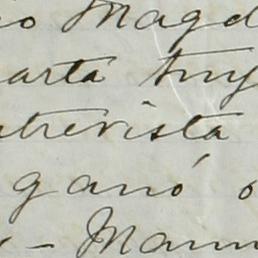 io Magd
arta tuy
ntrevista
ganó o
- Mann